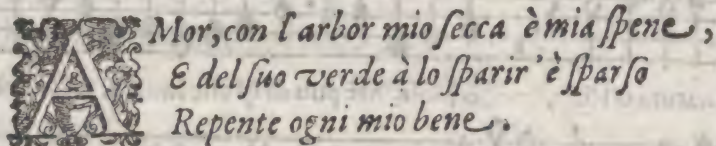 AMor, con l'arbor mio ſecca è mia ſpene,
E del ſuo verde à lo ſparir' è ſparſo
Repente ogni mio bene.